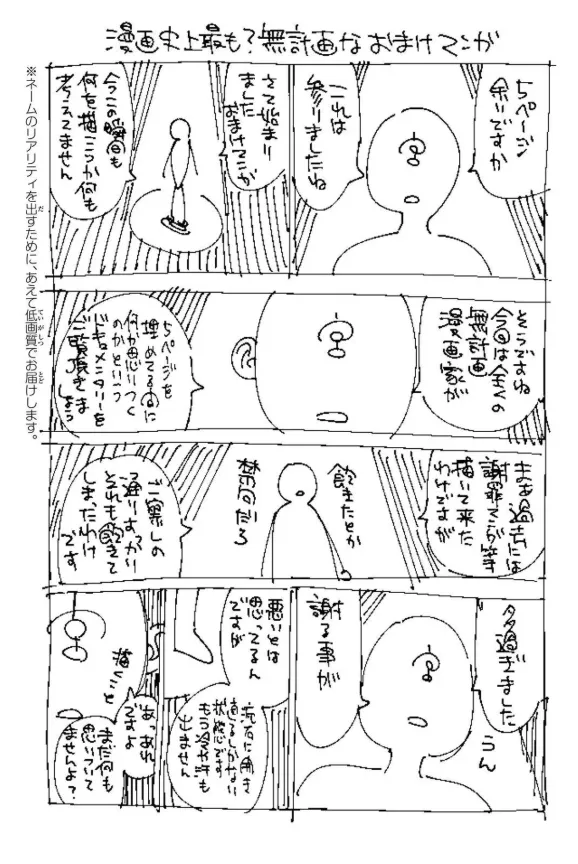 漫画史上最も?無計画なおまけマンガ
5ページ
余いですか
これは
参りましたね
さて始まり
ました
おまけマンガ
今この瞬間も
何を描こうか何も
考えてません
そうですね
今回は全くの
無計画
漫画家が
5ページを
埋めてる間に
何か思いつく
のかという
ドキュメンタリーを
ご覧頂きま
しょう
まあ過去には
謝罪マンガ等
描いて来た
わけですが
飽きたとか
禁句だろ
ご察しの
通りすっかり
それも飽きて
しまったわけ
です
多過ぎました
うん
謝る事が
悪いとは
思ってるん
ですが
流石に開き
直るしかない
状態です
もう冷や汗も
出ません
描くこと
あ、あれ
ですよ
まだ何も
思いついて
ませんよ?
※ネームのリアリティを出すために、あえて低画質でお届けします。